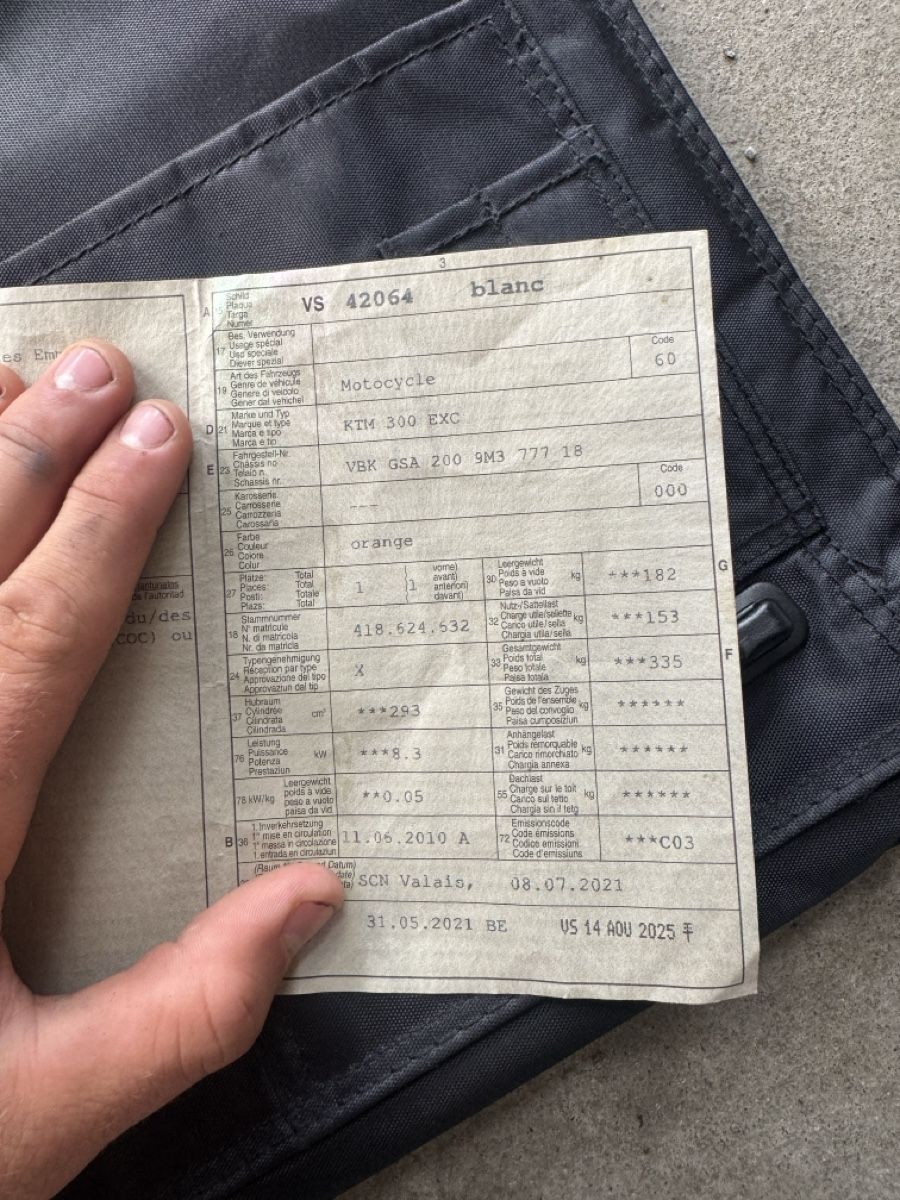 3
A 15 Schild Plaque Targa Numer VS 42064 blanc
17 Bes. Verwendung Usage spécial Uso speciale Diever spezial Code 60
19 Art des Fahrzeugs Genre de véhicule Genere di veicolo Gener dal vehichel Motocycle
D 21 Marke und Typ Marque et type Marca e tipo Marca e tip KTM 300 EXC
E 23 Fahrgestell-Nr. Châssis no Telaio n. Schassis nr. VBK GSA 200 9M3 777 18
25 Karosserie Carrosserie Carrozzeria Carossaria --- Code 000
26 Farbe Couleur Colore Colur orange
27 Plätze: Total Places: Total Posti: Totale Plazs: Total 1 (1 vorne) avant) anteriori) davant) 30 Leergewicht Poids à vide Peso a vuoto Paisa da vid kg ***182 G
18 Stammnummer N° matricule N. di matricola Nr. da matricla 418.624.532 32 Nutz-/Sattellast Charge utile/sellette Carico utile/sella Chargia utila/sella kg ***153
24 Typengenehmigung Réception par type Approvazione del tipo Approvaziun dal tip X 33 Gesamtgewicht Poids total Peso totale Paisa totala kg ***335 F
37 Hubraum Cylindrée Cilindrata Cilindrada cm³ ***293 35 Gewicht des Zuges Poids de l'ensemble Peso del convoglio Paisa cumposiziun kg ******
76 Leistung Puissance Potenza Prestaziun kW ***8.3 31 Anhängelast Poids remorquable Carico rimorchiato Chargia annexa kg ******
78 kW/kg Leergewicht poids à vide peso a vuoto paisa da vid **0.05 55 Dachlast Charge sur le toit Carico sul tetto Chargia sin il tetg kg ******
B 36 1. Inverkehrsetzung 1re mise en circulation 1a messa in circolazione 1. entrada en circulaziun 11.06.2010 A 72 Emissionscode Code émissions Codice emissioni Code d'emissiuns ***C03
Datum) SCN Valais, 08.07.2021
31.05.2021 BE VS 14 AOU 2025
du/des
COC) ou